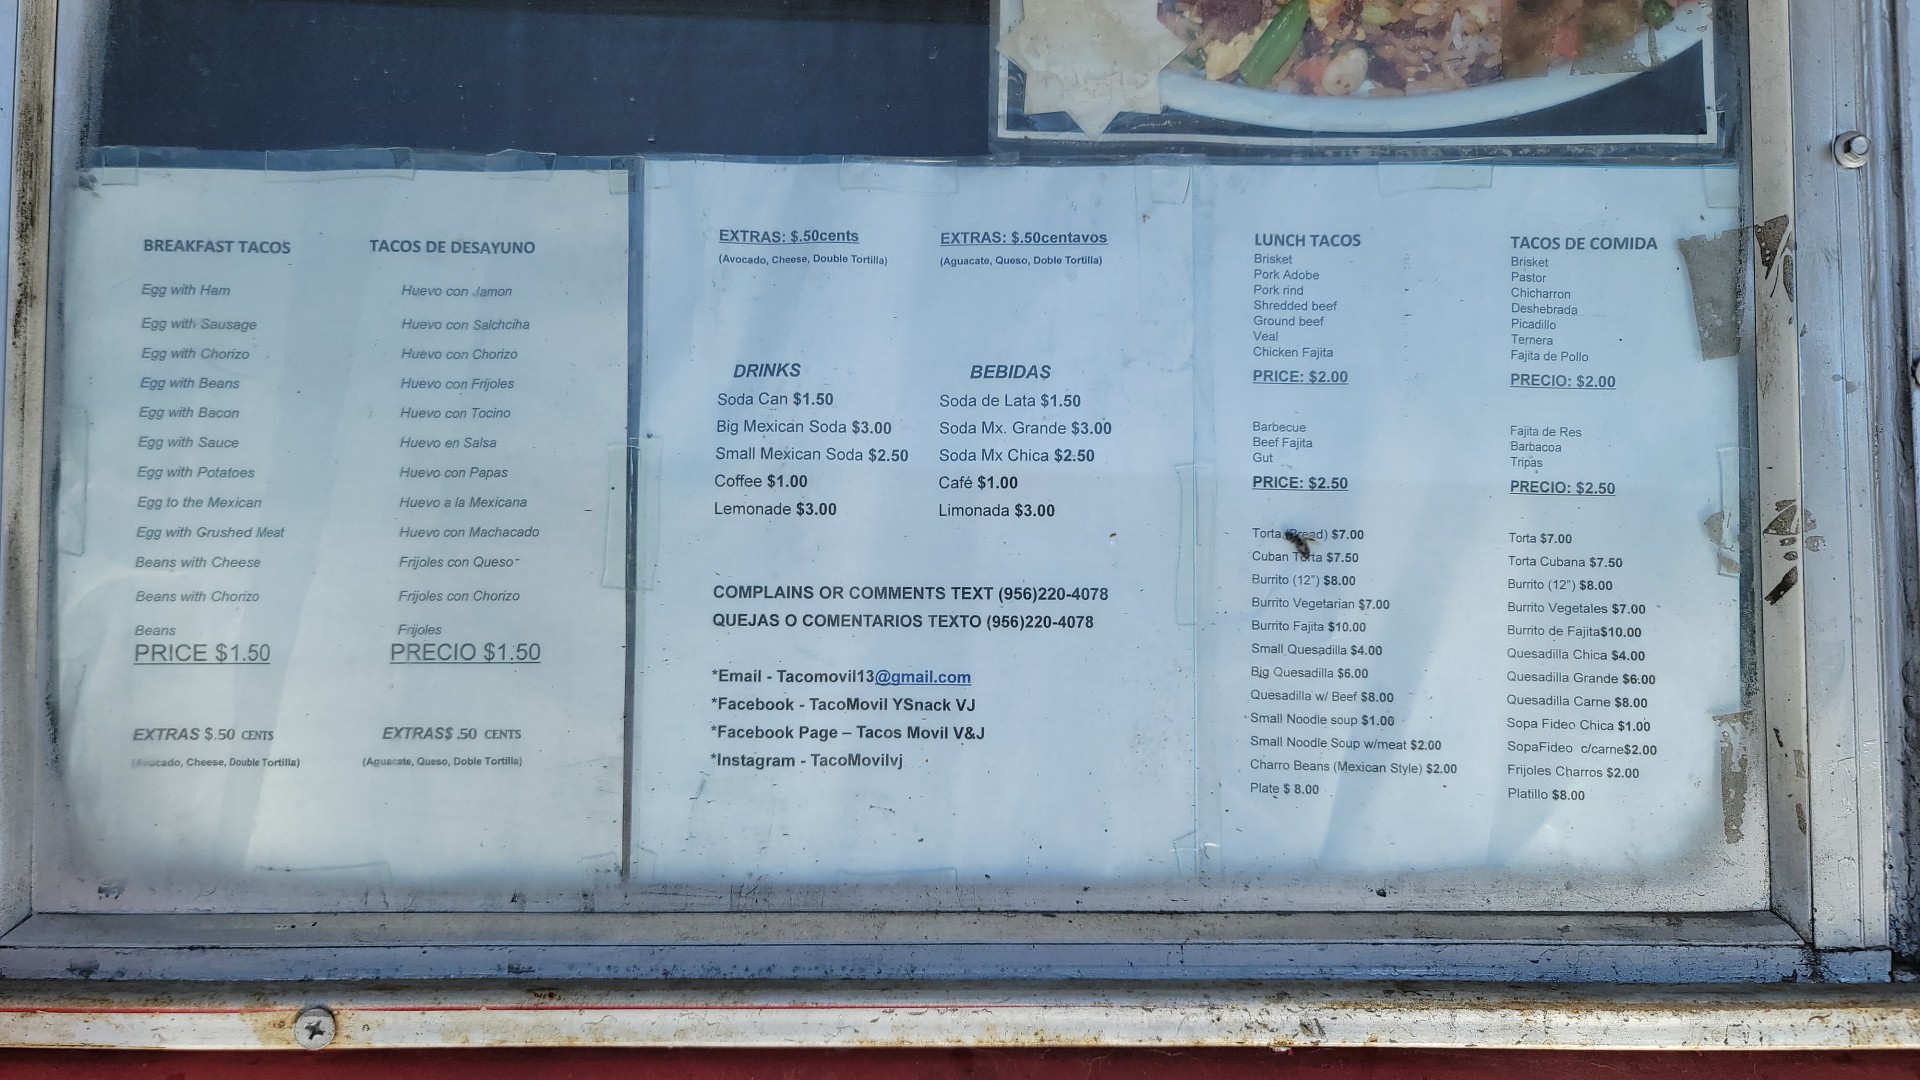 BREAKFAST TACOS
Egg with Ham
Egg with Sausage
Egg with Chorizo
Egg with Beans
Egg with Bacon
Egg with Sauce
Egg with Potatoes
Egg to the Mexican
Egg with Grushed Meat
Beans with Cheese
Beans with Chorizo
Beans
PRICE $1.50
EXTRAS $.50 CENTS
(Avocado, Cheese, Double Tortilla)
TACOS DE DESAYUNO
Huevo con Jamon
Huevo con Salchciha
Huevo con Chorizo
Huevo con Frijoles
Huevo con Tocino
Huevo en Salsa
Huevo con Papas
Huevo a la Mexicana
Huevo con Machacado
Frijoles con Queso
Frijoles con Chorizo
Frijoles
PRECIO $1.50
EXTRAS$ .50 CENTS
(Aguacate, Queso, Doble Tortilla)
EXTRAS: $.50cents
(Avocado, Cheese, Double Tortilla)
EXTRAS: $.50centavos
(Aguacate, Queso, Doble Tortilla)
DRINKS
Soda Can $1.50
Big Mexican Soda $3.00
Small Mexican Soda $2.50
Coffee $1.00
Lemonade $3.00
BEBIDAS
Soda de Lata $1.50
Soda Mx. Grande $3.00
Soda Mx Chica $2.50
Café $1.00
Limonada $3.00
COMPLAINS OR COMMENTS TEXT (956)220-4078
QUEJAS O COMENTARIOS TEXTO (956)220-4078
*Email - Tacomovil13@gmail.com
*Facebook - TacoMovil YSnack VJ
*Facebook Page – Tacos Movil V&J
*Instagram - TacoMovilvj
LUNCH TACOS
Brisket
Pork Adobe
Pork rind
Shredded beef
Ground beef
Veal
Chicken Fajita
PRICE: $2.00
Barbecue
Beef Fajita
Gut
PRICE: $2.50
Torta (Bread) $7.00
Cuban Torta $7.50
Burrito (12") $8.00
Burrito Vegetarian $7.00
Burrito Fajita $10.00
Small Quesadilla $4.00
Big Quesadilla $6.00
Quesadilla w/ Beef $8.00
Small Noodle soup $1.00
Small Noodle Soup w/meat $2.00
Charro Beans (Mexican Style) $2.00
Plate $ 8.00
TACOS DE COMIDA
Brisket
Pastor
Chicharron
Deshebrada
Picadillo
Ternera
Fajita de Pollo
PRECIO: $2.00
Fajita de Res
Barbacoa
Tripas
PRECIO: $2.50
Torta $7.00
Torta Cubana $7.50
Burrito (12") $8.00
Burrito Vegetales $7.00
Burrito de Fajita$10.00
Quesadilla Chica $4.00
Quesadilla Grande $6:00
Quesadilla Carne $8.00
Sopa Fideo Chica $1.00
SopaFideo c/carne$2.00
Frijoles Charros $2.00
Platillo $8.00